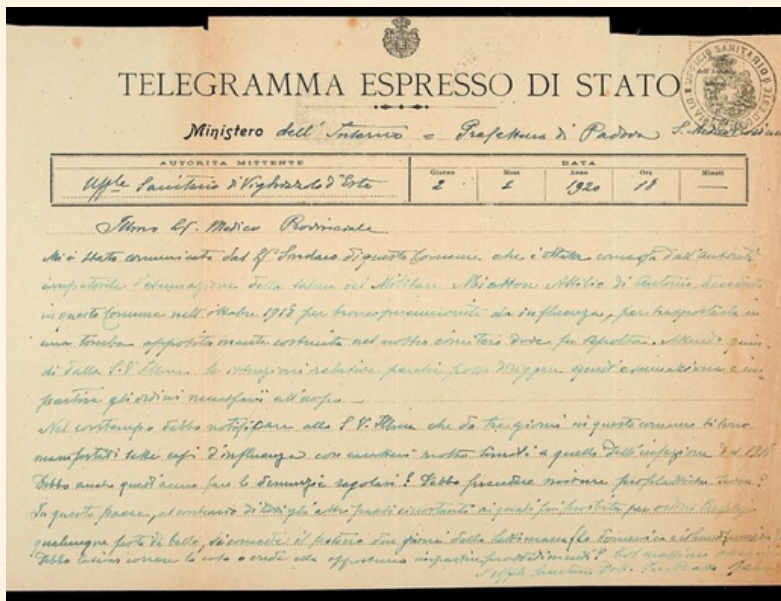 TELEGRAMMA ESPRESSO DI STATO
UFFICIO SANITARIO
Ministero dell'Interno = Prefettura di Padova S. Medico Provinciale
AUTORITÀ MITTENTE DATA
Giorno Mese Anno Ore Minuti
Uffle Sanitario di Vighizzolo d'Este 2 1920 18 —
Illmo Sg. Medico Provinciale
Mi è stato comunicato dal Sg. Sindaco di questo Comune che è stata concessa dall'autorità
l'esumazione della salma del Militare Miatton Attilio di Antonio deceduto
in questo Comune nell'ottobre 1918 per broncopneumonite da influenza, per trasportarla in
una tomba appositamente costruita nel nostro cimitero dove fu sepolto. Attendo quin-
di dalla S.V. Illma le istruzioni relative perchè possa dirigere quest'esumazione e im-
partire gli ordini necessari all'uopo.
Nel contempo debbo notificare alla S.V. Illma che da tre giorni in questo comune si sono
manifestati sette casi d'influenza con caratteri molto simili a quelli dell'infezione del 1918
Debbo anche quest'anno fare le denunzie regolari? Debbo prendere misure profilattiche
In questo paese, al contrario di tutti gli altri paesi circostanti ai quali fu proibita per ordine Prefettizio
qualunque festa da ballo, si concede il due giorni della settimana (la domenica e il lunedì
Debbo lasciar correre la cosa o crede ella opportuno impartire provvedimenti? Col massimo